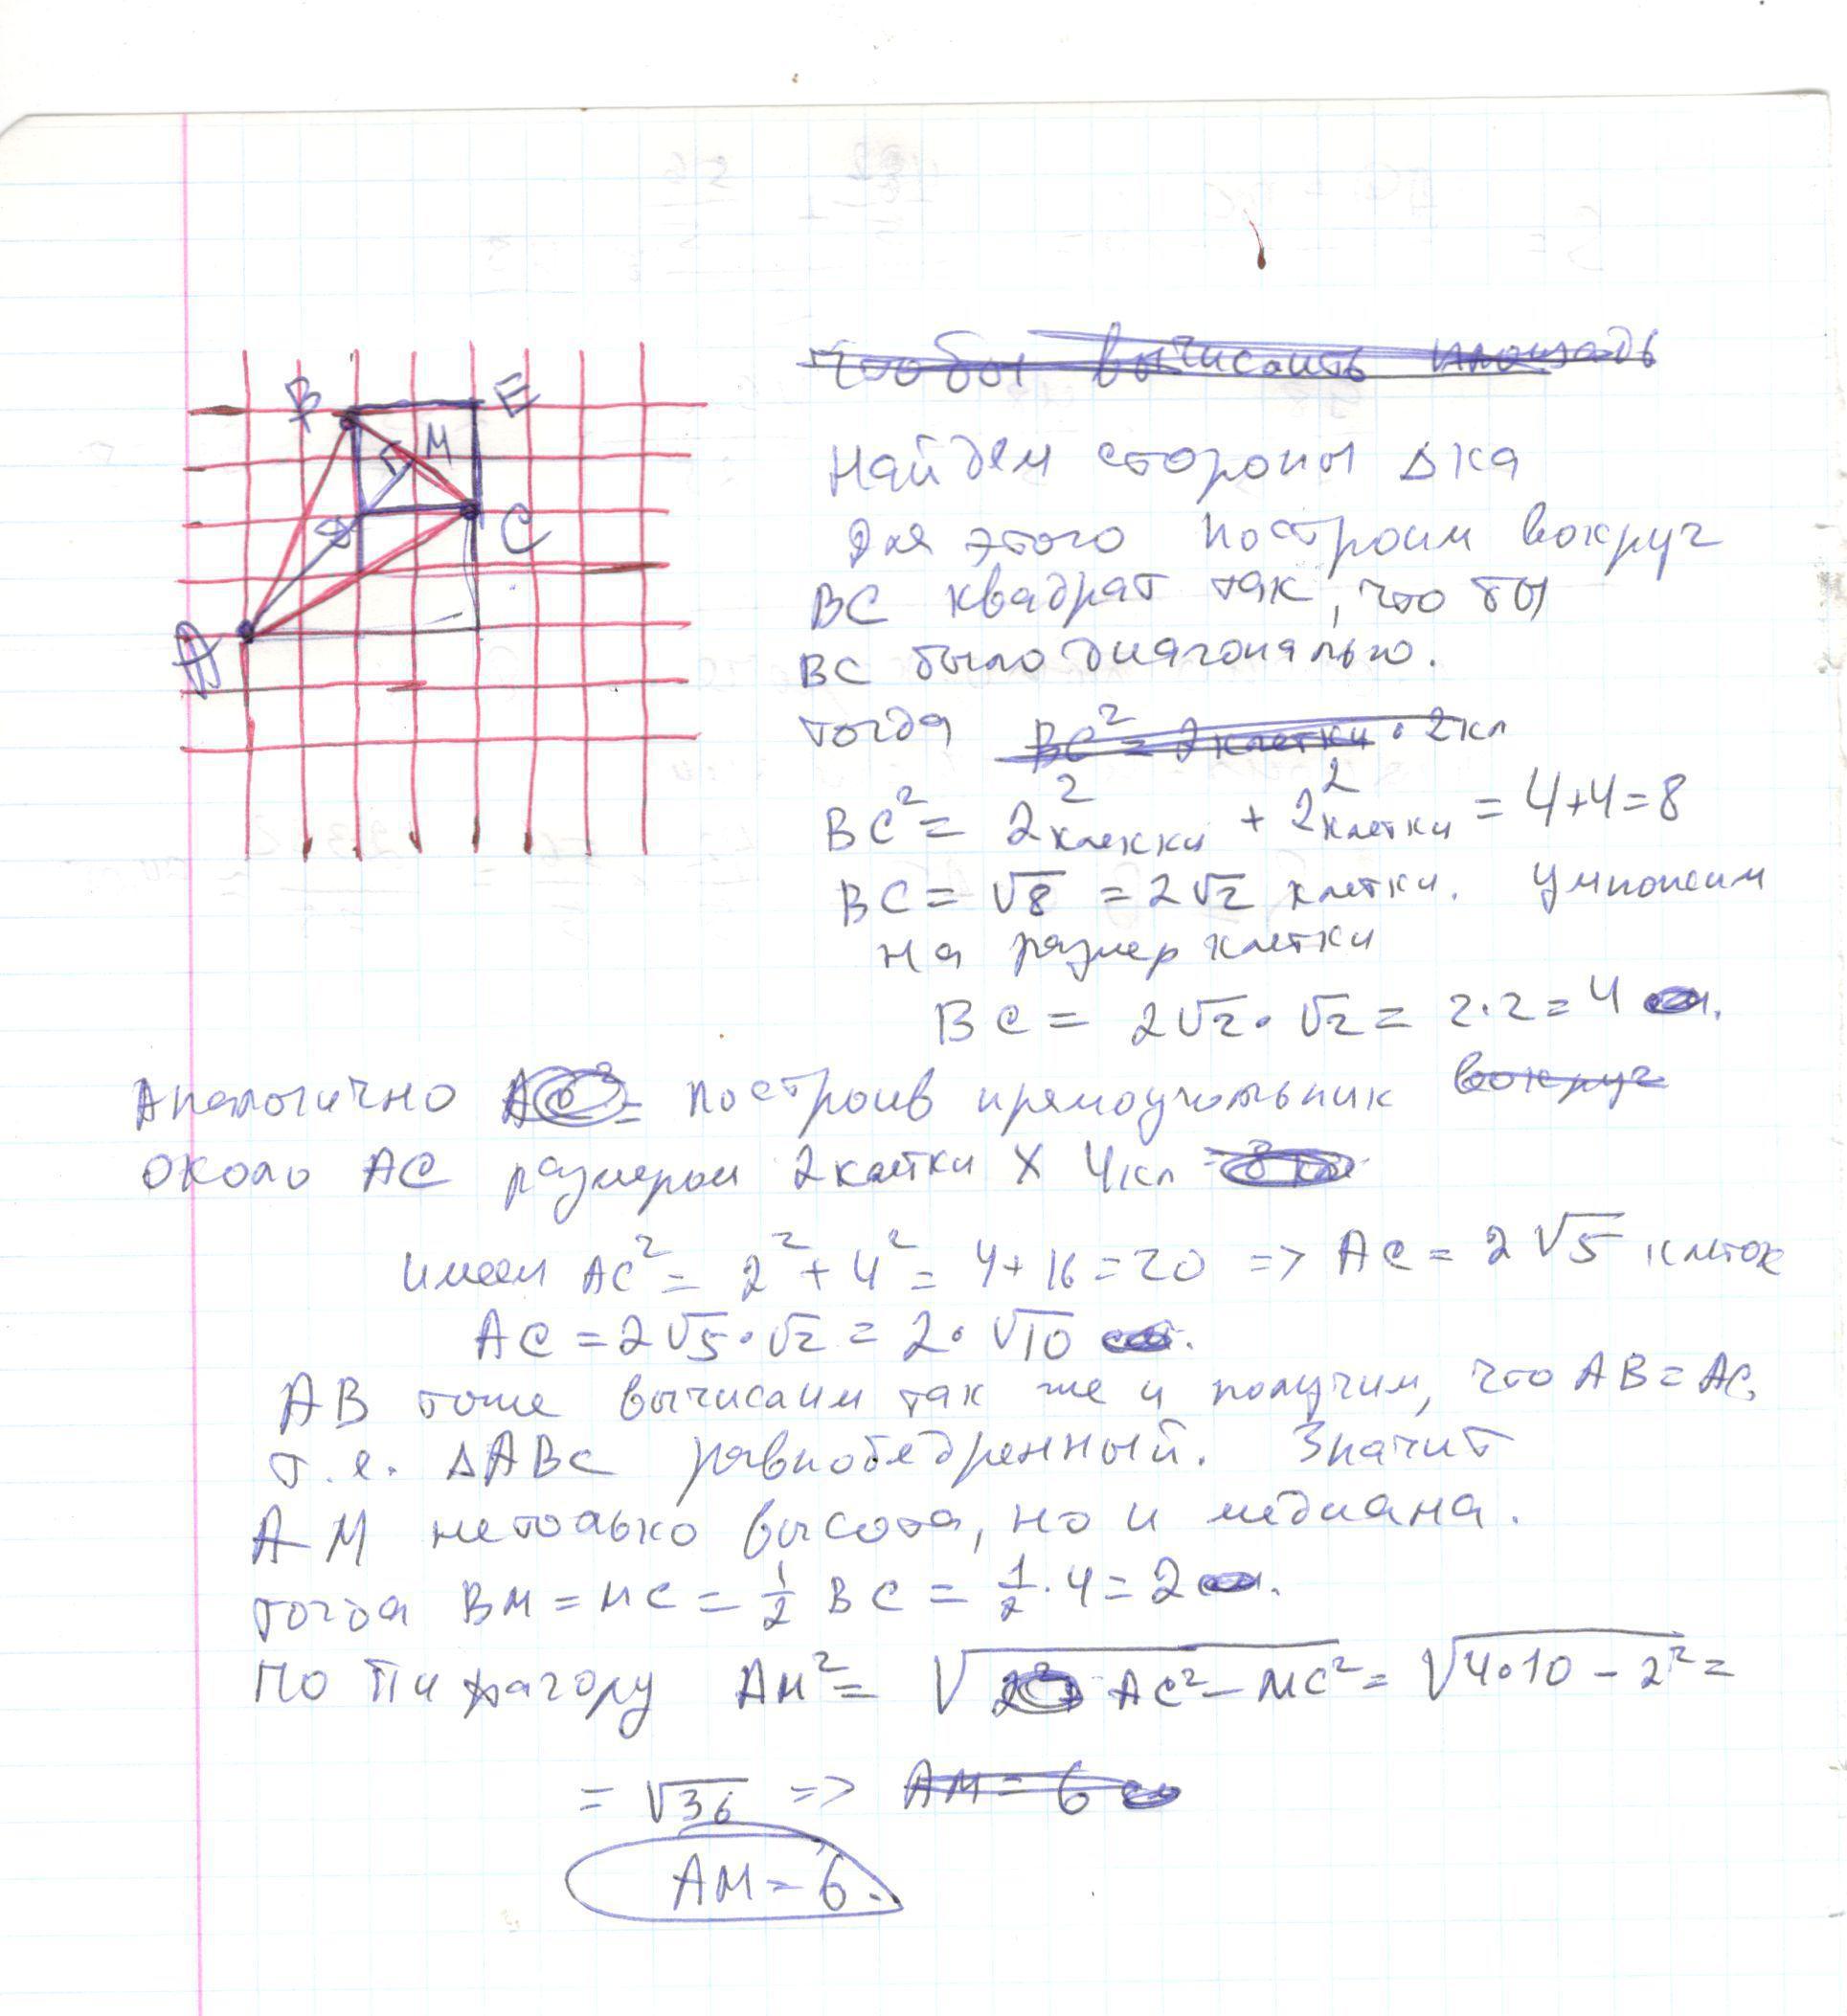 B E
M
A C
Чтобы вычислить площадь
Найдем стороны Δка
Для этого построим вокруг
BC квадрат так, что бы
BC было диагональю.
тогда BC² = 2 клетки · 2 кл
BC² = 2² клекки + 2² клетки = 4+4=8
BC = √8 = 2√2 клетки. Умножим
на размер клетки
BC = 2√2 · √2 = 2·2=4
Аналогично построив прямоугольник вокруг
около AC размером 2 клетки X 4 кл
имеем AC² = 2² + 4² = 4+16=20 => AC = 2√5 клеток
AC = 2√5 · √2 = 2 · √10
AB тоже вычислим так же и получим, что AB = AC,
т.е. ΔABC равнобедренный. Значит
AM не только высота, но и медиана.
тогда BM = MC = 1/2 BC = 1/2 · 4 = 2
По Пифагору AM² = √AC² - MC² = √4·10 - 2² =
= √36 => AM = 6
AM = 6.